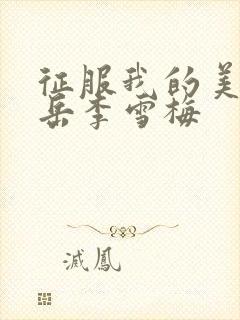 征服我的美
岳李雪梅
滅鳳